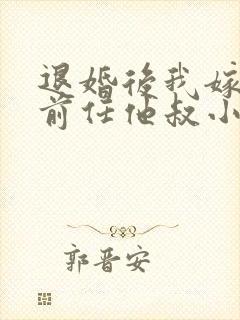 退婚後我嫁
前任他叔小
郭晋安